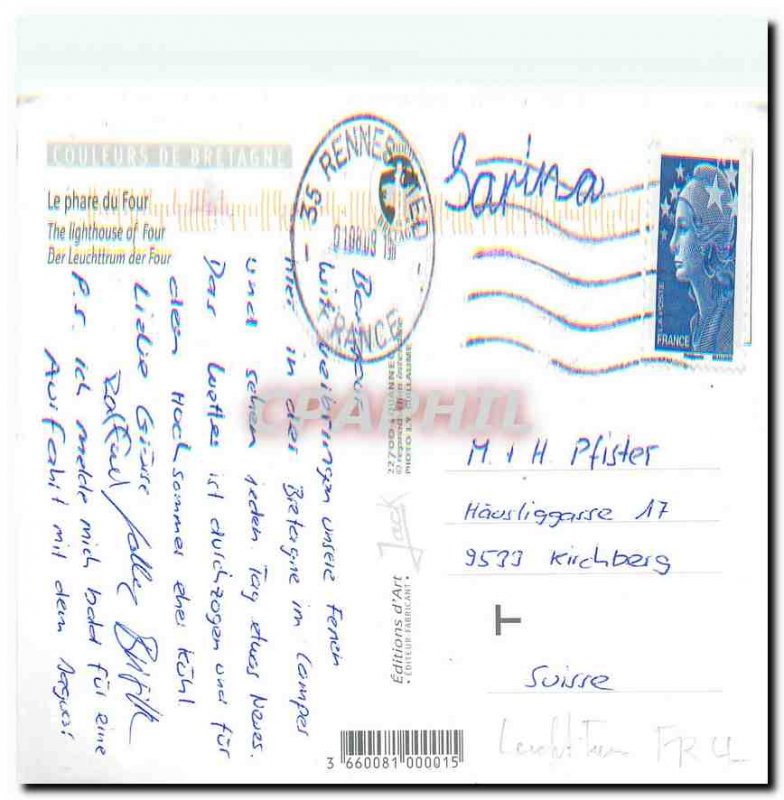 COULEURS DE BRETAGNE
Le phare du Four
The lighthouse of Four
Der Leuchttrum der Four
35 RENNES
010809
FRANCE
Sarina
LA POSTE
FRANCE
Bonjour
Wir verbringen unsere Ferien
hier in der Bretagne im Camper
und sehen jeden Tag etwas Neues.
Das Wetter ist durchzogen und für
den Hochsommer eher kühl.
Liebe Grüsse
P.S. ich melde mich bald für eine
Ausfahrt mit dem
22700 LOUANNEC
PHOTO J.Y. GUILLAUME
Jack
Éditions d'Art
• ÉDITEUR-FABRICANT •
M. + H. Pfister
Häusliggasse 17
9533 Kirchberg
T
Suisse
3 660081 000015
CPAPHIL